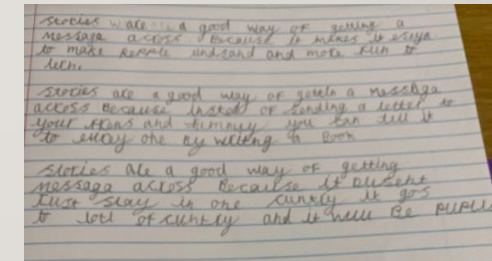 stories are a good way of getting a
messaga across Because it makes it eseya
to make people undsand and more fun to
lern.
stories are a good way of gettin a messaga
across Because insted of sending a letter to
your frens and you can tell it
to evrey one by writing a Book
stories are a good way of getting
messaga across Because it dusent
Just stay in one cuntry it gos
to lots of cuntry and it will Be